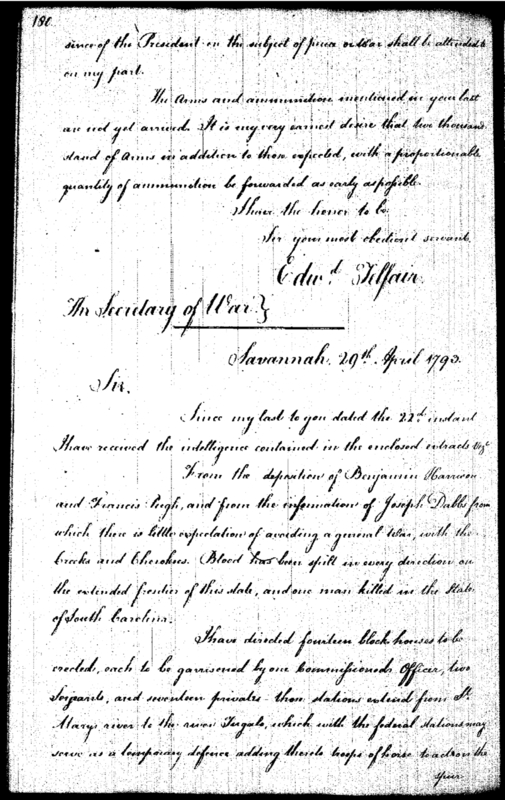 180
sires of the President on the subject of peace or War shall be attended to
on my part.
The Arms and ammunition mentioned in your last
are not yet arrived. It is my very earnest desire that two thousand
stand of Arms in addition to those expected, with a proportionable
quantity of ammunition be forwarded as early as possible.
I have the honor to be
Sir your most obedient servant.
Edwd. Telfair.
The Secretary of War }
Savannah. 29th. April 1793.
Sir.
Since my last to you dated the 22d. instant
I have received the intelligence contained in the enclosed extracts Vizt
From the deposition of Benjamin Harrison
and Francis Pugh, and from the information of Joseph Dabbs from
which there is little expectation of avoiding a general War, with the
Creeks and Cherokees. Blood has been spilt in every direction on
the extended frontier of this state, and one man killed in the State
of South Carolina.
I have directed fourteen block houses to be
erected, each to be garrisoned by one Commissioned Officer, two
Serjeants, and seventeen privates. these stations extend from St.
Marys river to the river Tugalo, which with the federal stations may
serve as a temporary defence adding thereto troops of horse to act on the
spur